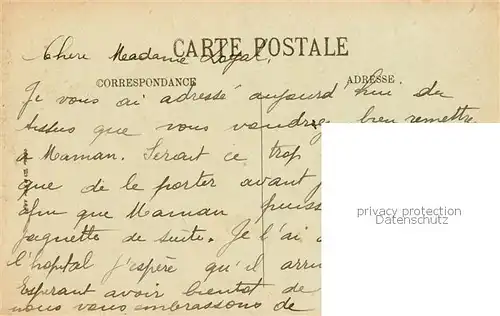 CARTE POSTALE
Chere Madame Royal,
CORRESPONDANCE
ADRESSE
Je vous ai adressé aujourd'hui du
tissus que vous voudrez bien remettre
a Maman. Serait ce trop
que de le porter avant
afin que Maman puiss
jaquette de suite. Je l'ai
l'hopital j'espère qu'il arri
Esperant avoir bientot de
nous vous embrassons de
privacy protection
Datenschutz